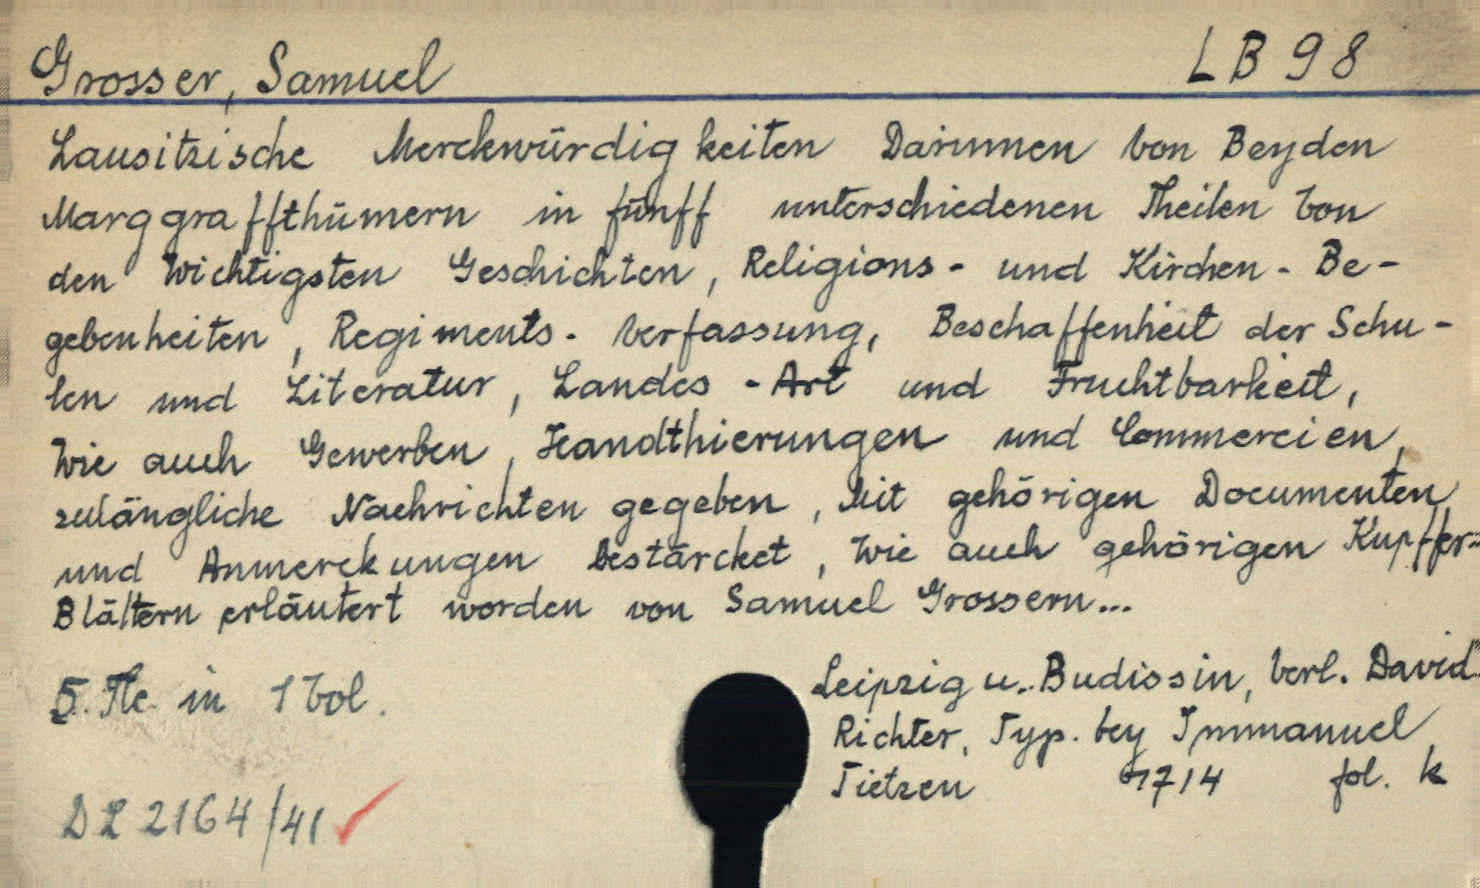 Grosser, Samuel LB 98
Lausitzische Merckwürdigkeiten Darinnen von Beyden
Marggraffthümern in fünff unterschiedenen Theilen von
den Wichtigsten Geschichten, Religions- und Kirchen-Be-
gebenheiten, Regiments-Verfassung, Beschaffenheit der Schu-
len und Literatur, Landes-Art und Fruchtbarkeit,
Wie auch Gewerben, Handthierungen und Commercien,
zulängliche Nachrichten gegeben, Mit gehörigen Documenten
und Anmerckungen bestärcket, Wie auch gehörigen Kupffer=
Blättern erläutert worden von Samuel Grossern...
5. Tle. in 1 vol.
Leipzig u. Budissin, verl. David
Richter, Typ. bey Immanuel
Tietzen 1714 fol. k
DZ 2164/41